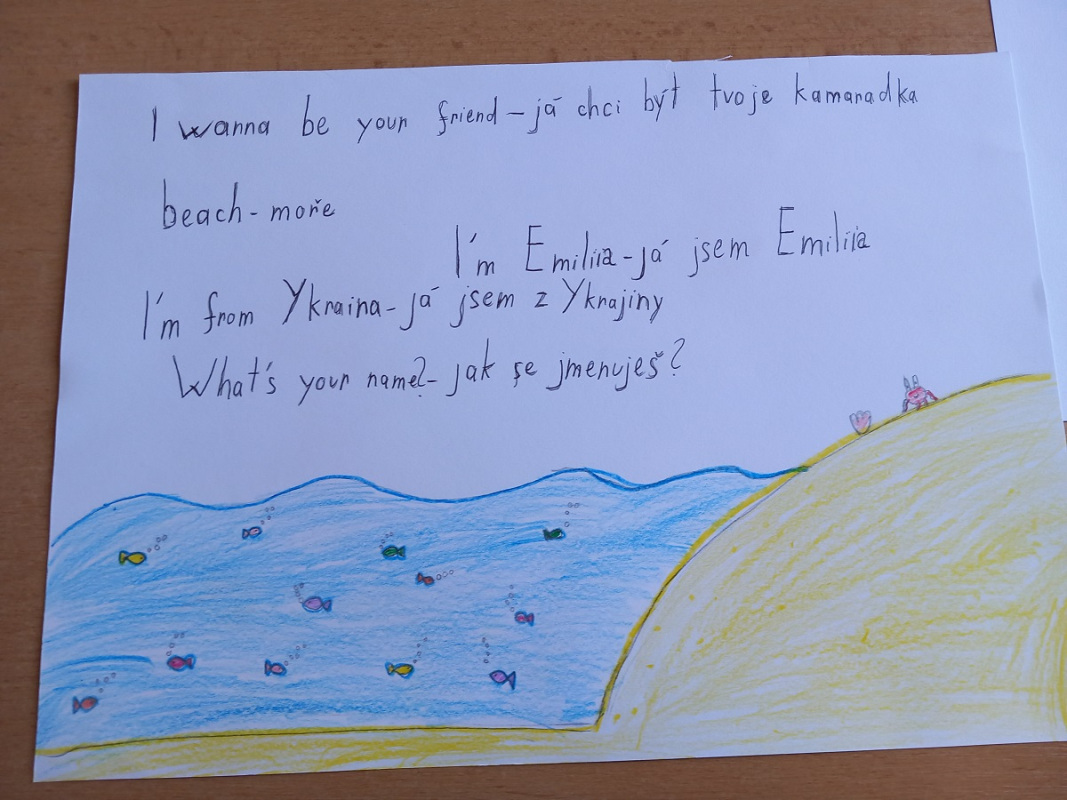 I wanna be your friend - já chci být tvoje kamaradka
beach - moře
I'm Emiliia - já jsem Emiliia
I'm from Ykraina - já jsem z Ykrajiny
What's your name? - jak se jmenuješ?